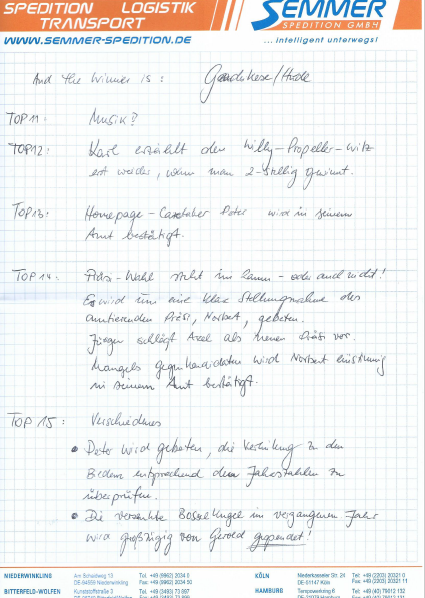 SPEDITION LOGISTIK
TRANSPORT
SEMMER
SPEDITION GMBH
WWW.SEMMER-SPEDITION.DE
...intelligent unterwegs!
And the Winner is: Ganderkesee/Hude
TOP 11: Musik?
TOP 12: Karl erzählt den Willy-Propeller-Witz
erst wieder, wenn man 2-stellig gewinnt.
TOP 13: Homepage-Caretaker Peter wird in seinem
Amt bestätigt.
TOP 14: Präsi-Wahl steht im Raum - oder auch nicht!
Es wird um eine klare Stellungnahme des
amtierenden Präsi, Norbert, gebeten.
Jürgen schlägt Axel als neuen Präsi vor.
Mangels Gegenkandidaten wird Norbert einstimmig
in seinem Amt bestätigt.
TOP 15: Verschiedenes
• Peter wird gebeten, die Verlinkung zu den
Bildern entsprechend den Jahrszahlen zu
überprüfen.
• Die versenkte Bosselkugel im vergangenen Jahr
wird großzügig von Gerold gespendet!
NIEDERWINKLING
Am Schaidweg 13
DE-94559 Niederwinkling
Tel. +49 (9962) 2034 0
Fax +49 (9962) 2034 50
KÖLN
Niederkasseler Str. 24
DE-51147 Köln
Tel: +49 (2203) 20321 0
Fax: +49 (2203) 20321 11
BITTERFELD-WOLFEN
Kunststoffstraße 3
Tel. +49 (3493) 73 897
HAMBURG
Tempowerkring 6
Tel: +49 (40) 79012 132